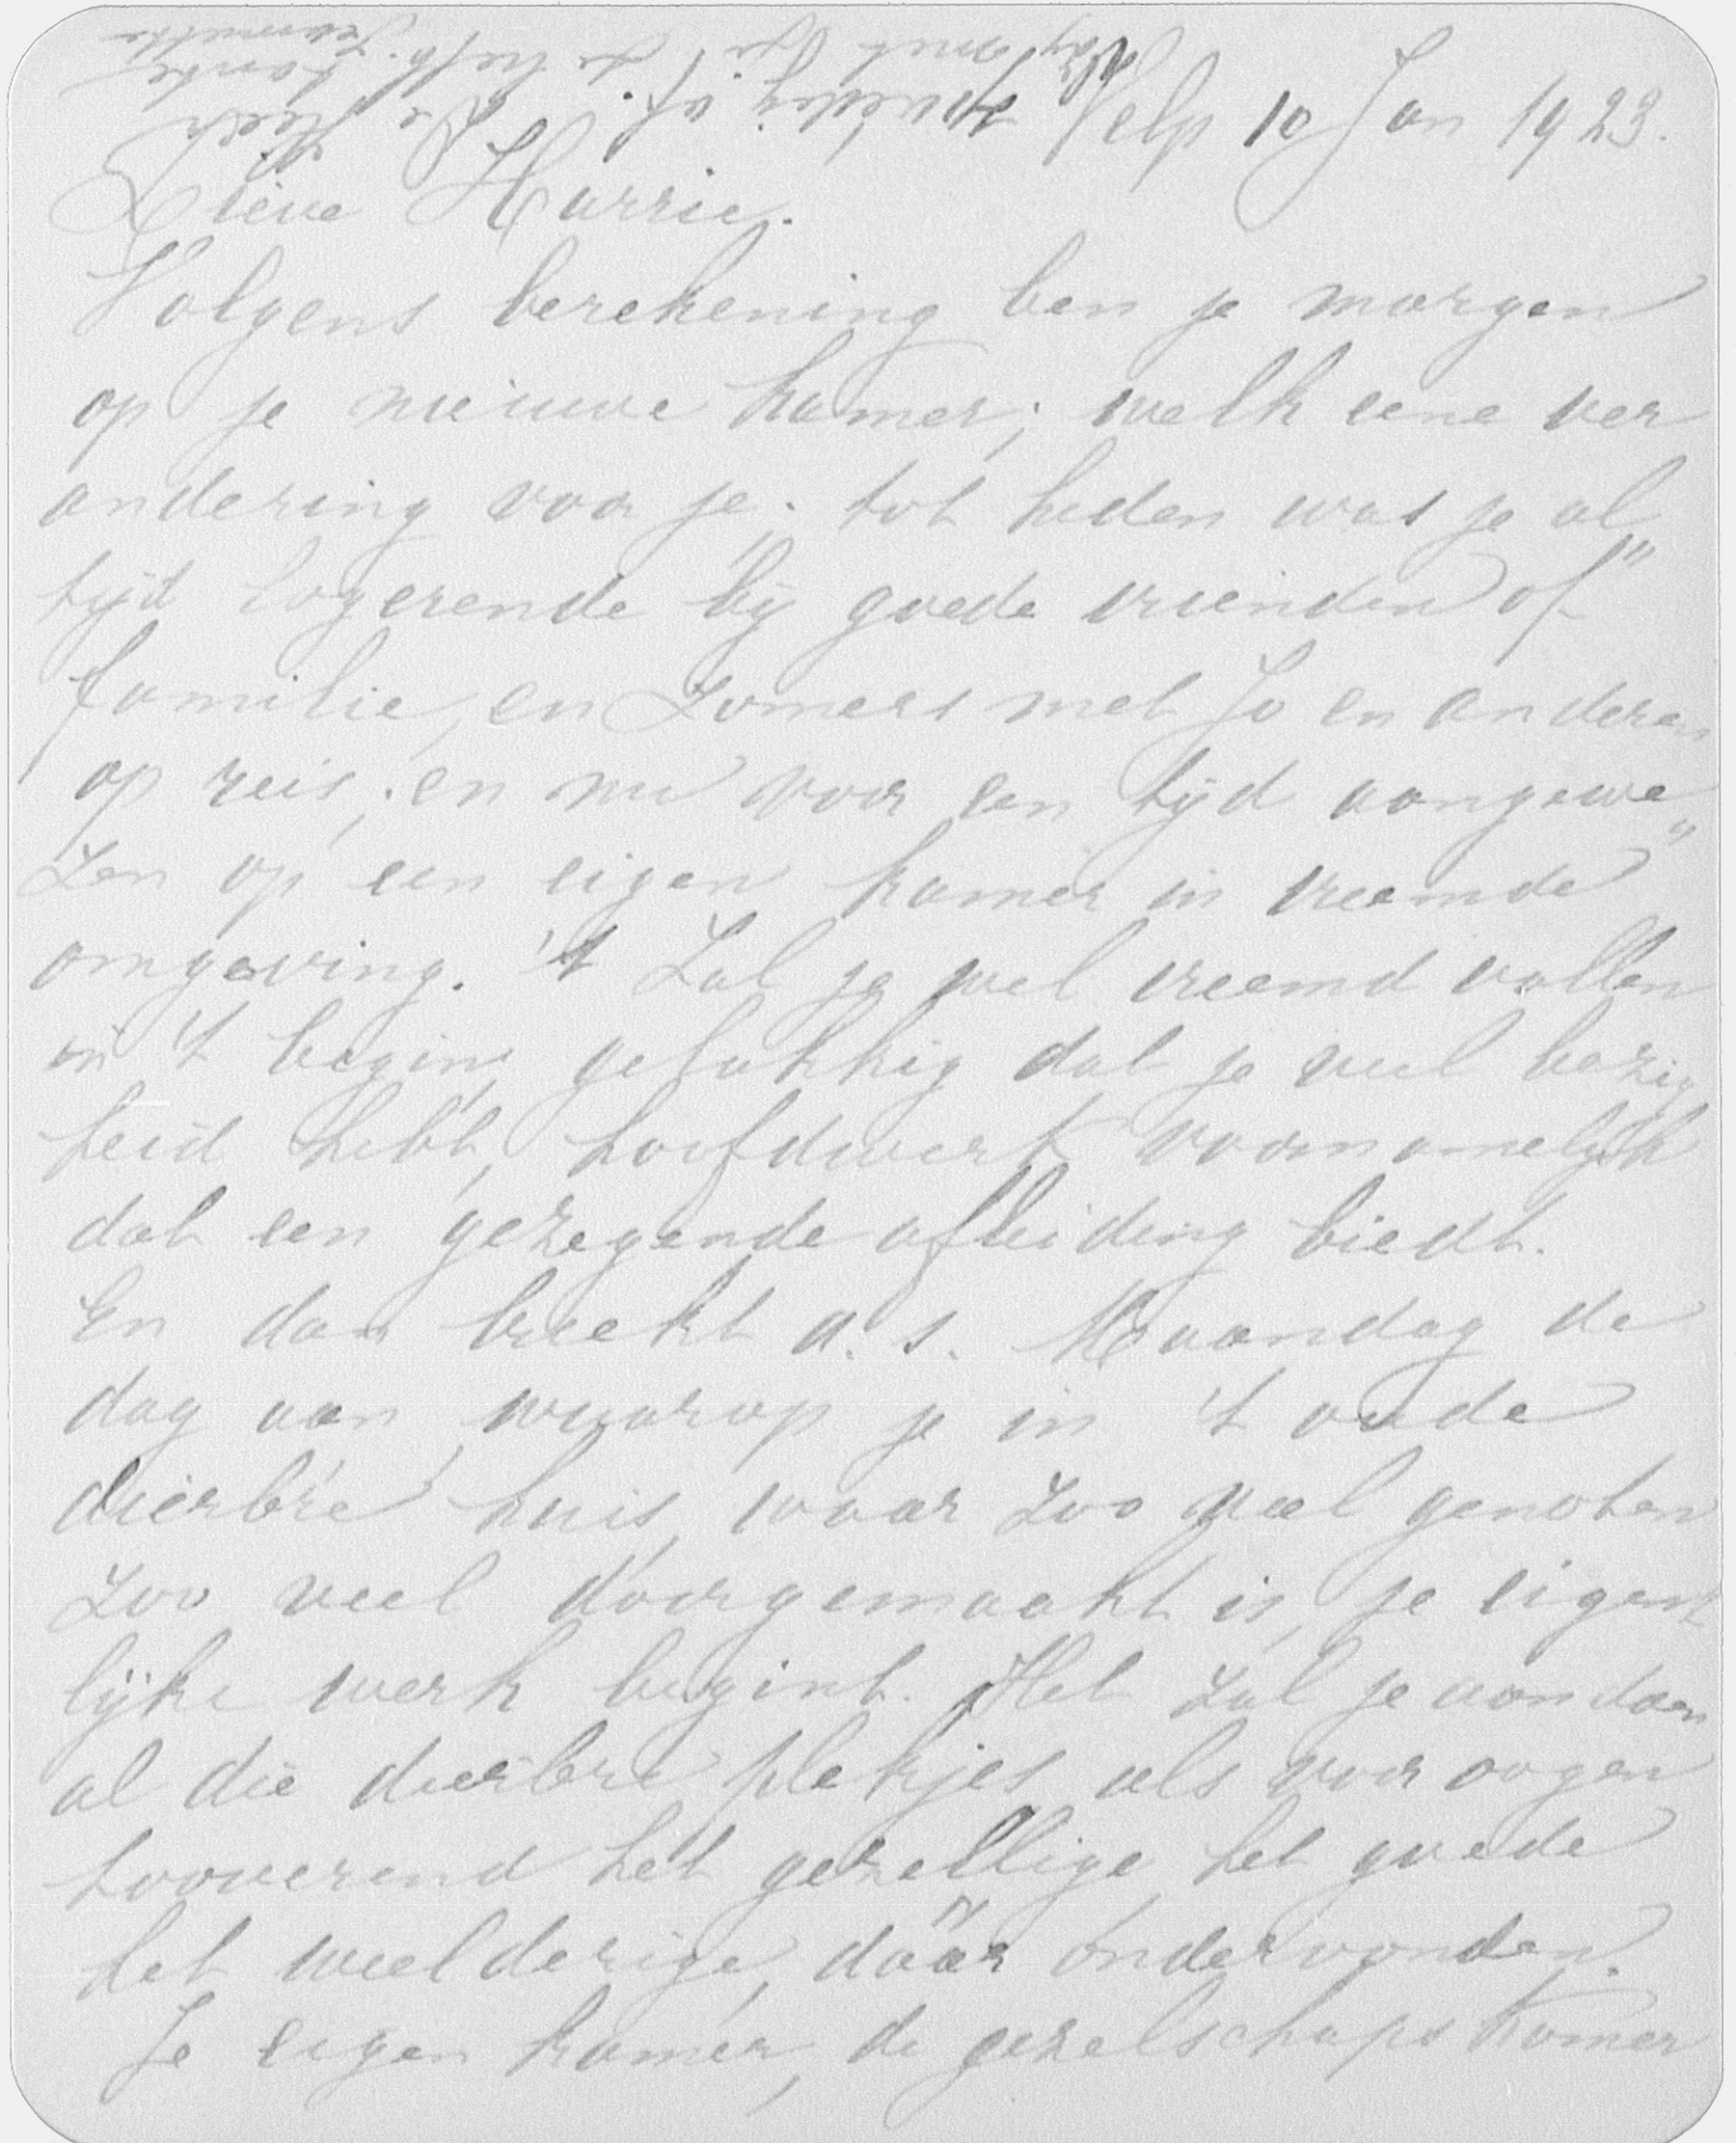 Velp 10 Jan 1923.
Lieve Harrie.
Volgens berekening ben je morgen
op je nieuwe kamer; welk eene ver
andering voor je; tot heden was je al"
tijd logerende bij goede vrienden of
familie, en Zomers met Jo en anderen
op reis; en nu voor een tijd aangewe"
zen op een eigen kamer in vreemde
omgeving. 't Zal je wel vreemd vallen
in 't begin, gelukkig dat je veel bezig
heid hebt, hoofdwerk voornamelijk
dat een gezegende afleiding biedt.
En dan breekt a. s. Maandag de
dag aan, waarop je in 't oude
dierb're huis, waar zoo veel genoten
zoo veel doorgemaakt is, je eigent
lijke werk begint. Het zal je aandoen
al die dierbre plekjes als voor oogen
tooverend het gezellige, het goede
het weelderige, daar ondervonden.
Je eigen kamer, de gezelschapskamer